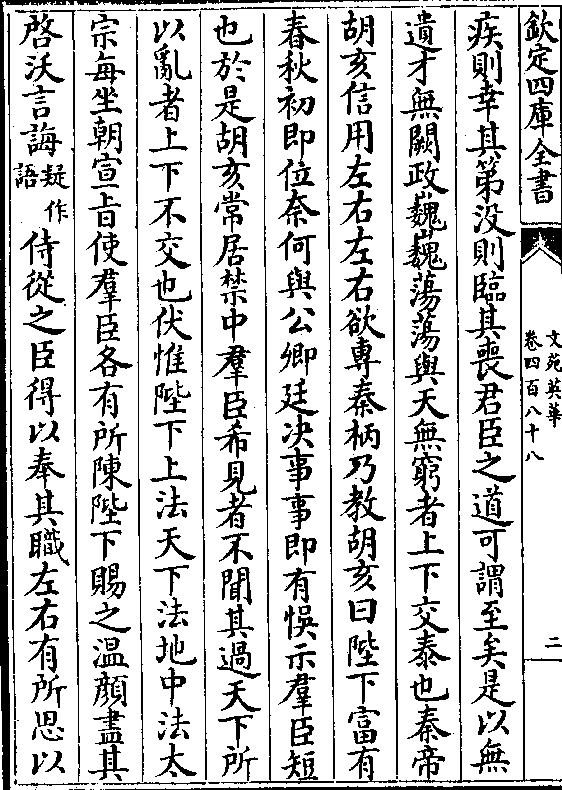 欽定四庫全書
文苑英華
卷四百八十八
二
疾則幸其第没則臨其喪君臣之道可謂至矣是以無
遺才無闕政巍巍蕩蕩與天無窮者上下交泰也秦帝
胡亥信用左右左右欲專秦柄乃教胡亥曰陛下富有
春秋初即位奈何與公卿廷决事事即有悞示羣臣短
也於是胡亥常居禁中羣臣希見者不聞其過天下所
以亂者上下不交也伏惟陛下上法天下法地中法太
宗每坐朝宣㫖使羣臣各有所陳陛下賜之温顔盡其
啓沃言誨疑作語侍從之臣得以奉其職左右有所思以